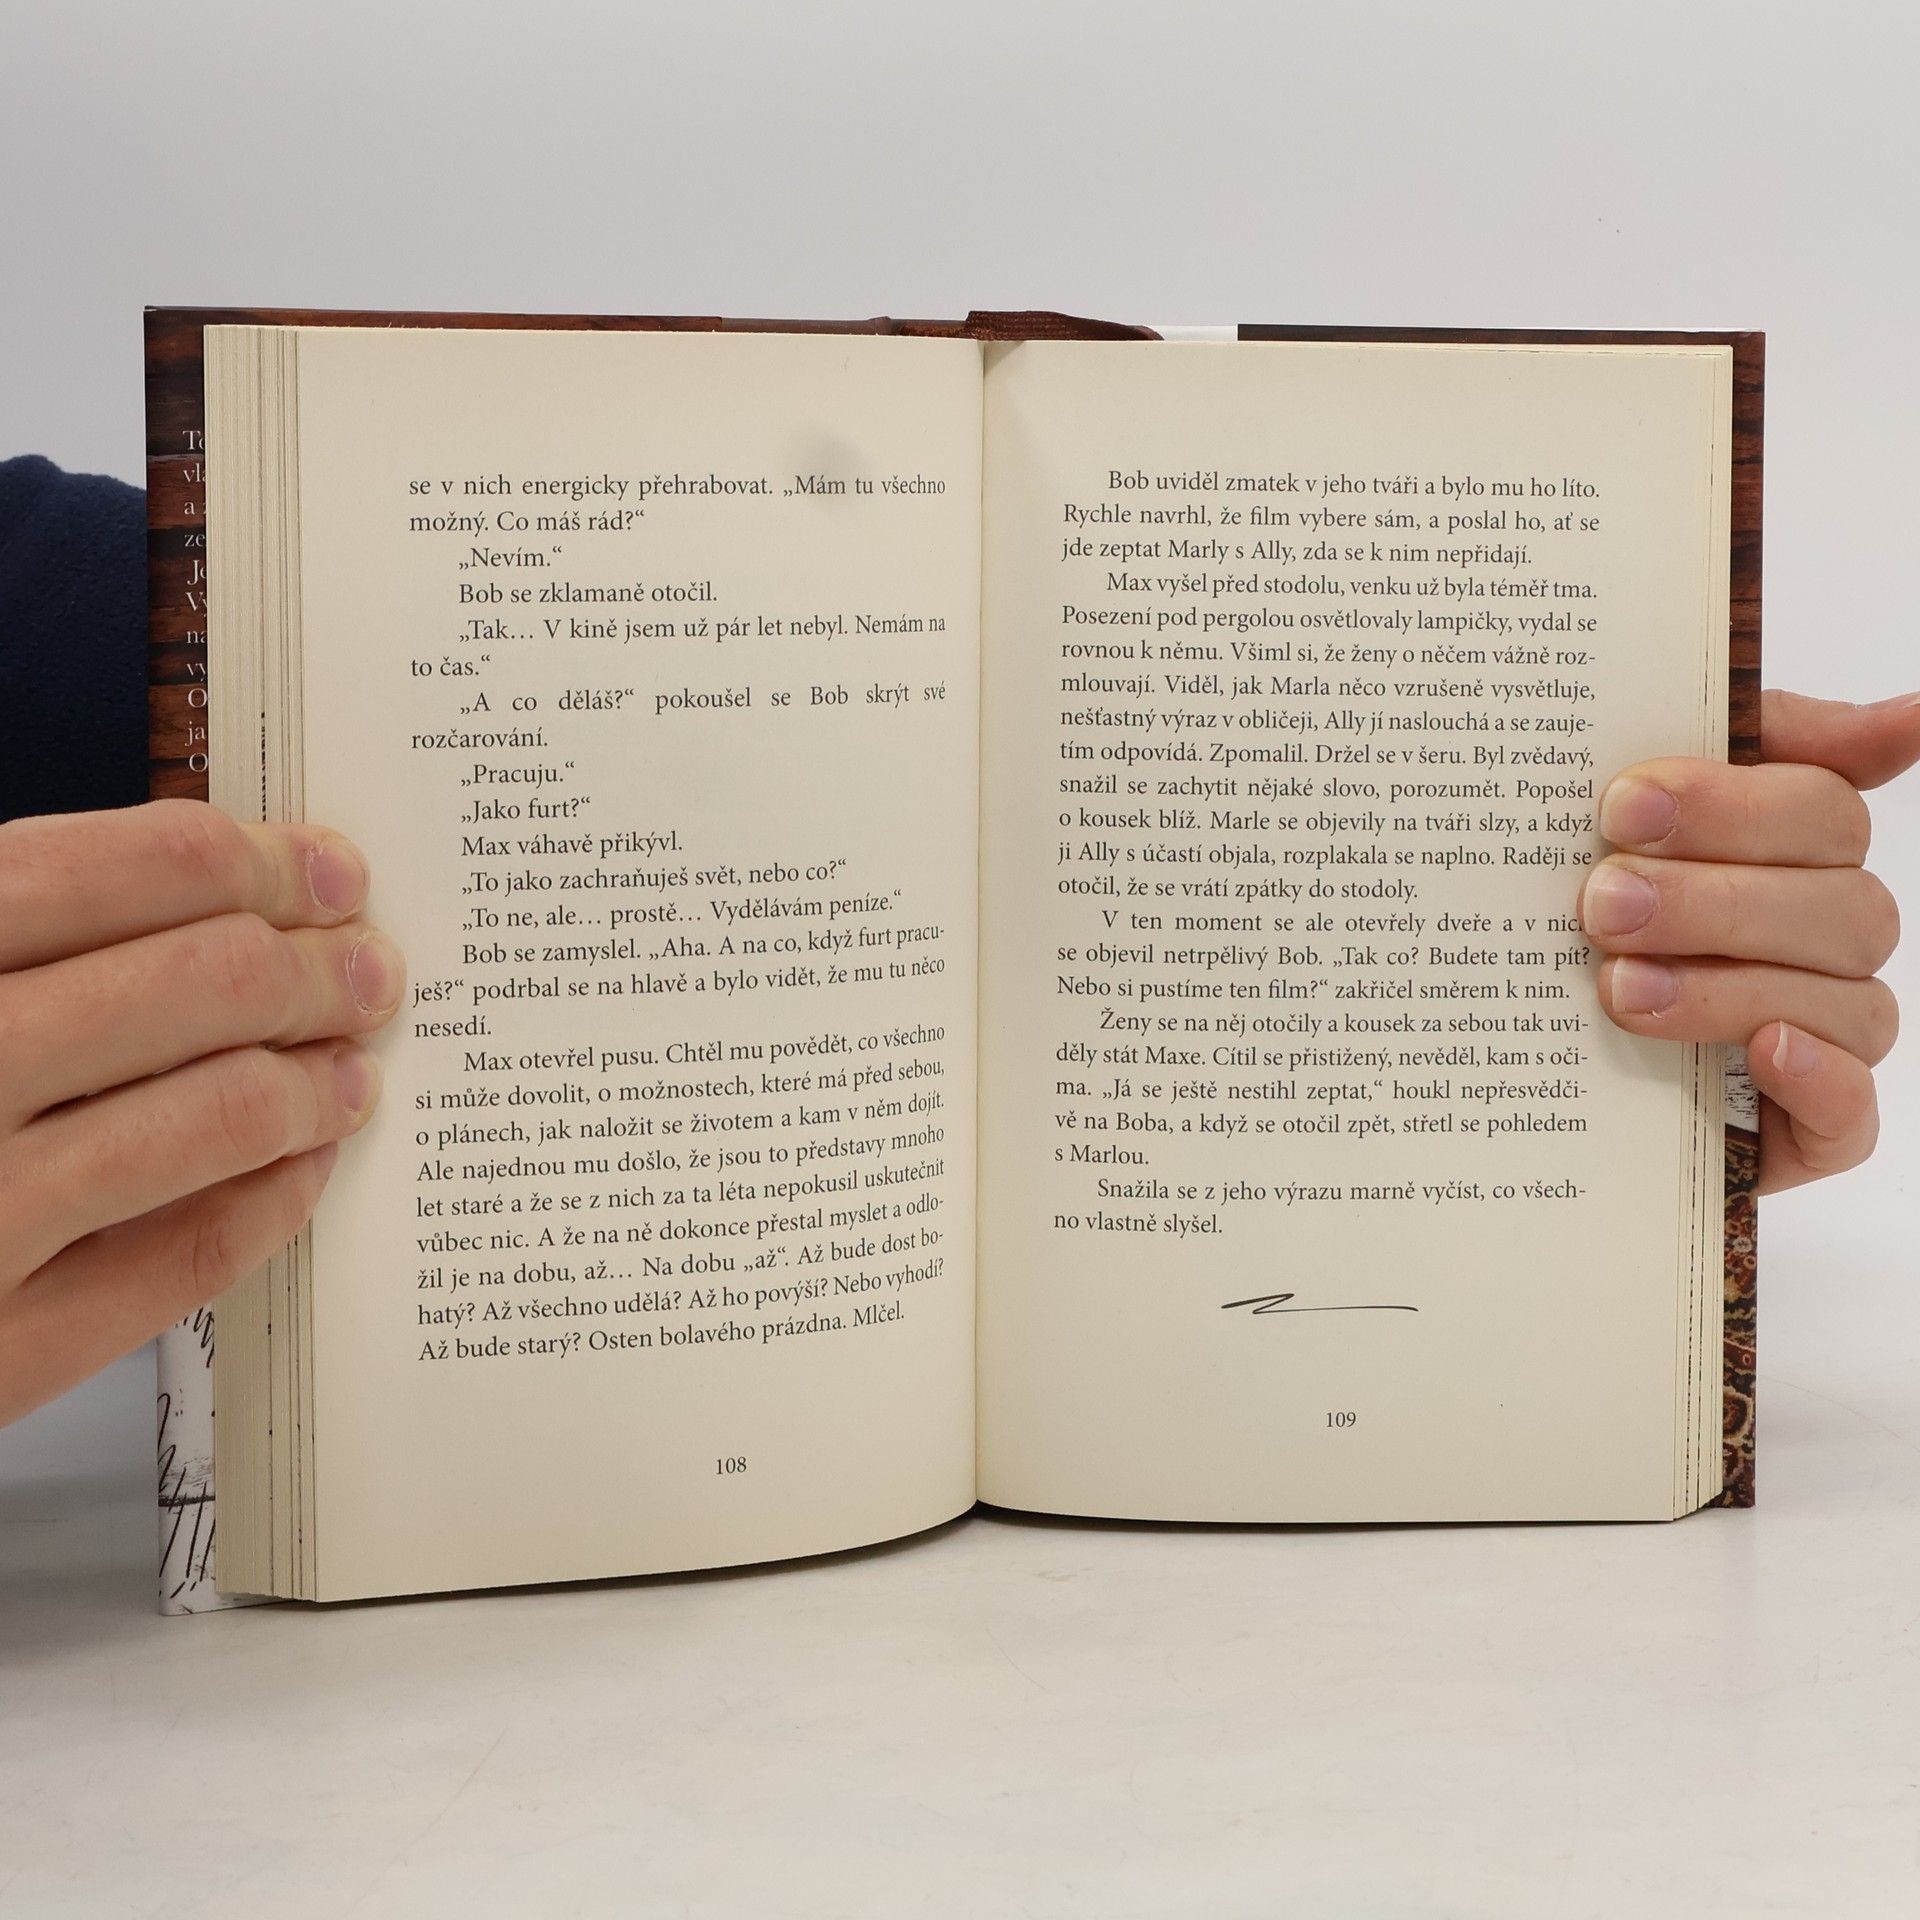 To
vla
a z
ze
Je
Vy
na
vy
O
ja
O
se v nich energicky přehrabovat. „Mám tu všechno
možný. Co máš rád?“
„Nevím.“
Bob se zklamaně otočil.
„Tak… V kině jsem už pár let nebyl. Nemám na
to čas.“
„A co děláš?“ pokoušel se Bob skrýt své
rozčarování.
„Pracuju.“
„Jako furt?“
Max váhavě přikývl.
„To jako zachraňuješ svět, nebo co?“
„To ne, ale… prostě… Vydělávám peníze.“
Bob se zamyslel. „Aha. A na co, když furt pracu-
ješ?“ podrbal se na hlavě a bylo vidět, že mu tu něco
nesedí.
Max otevřel pusu. Chtěl mu povědět, co všechno
si může dovolit, o možnostech, které má před sebou,
o plánech, jak naložit se životem a kam v něm dojít.
Ale najednou mu došlo, že jsou to představy mnoho
let staré a že se z nich za ta léta nepokusil uskutečnit
vůbec nic. A že na ně dokonce přestal myslet a odlo-
žil je na dobu, až… Na dobu „až“. Až bude dost bo-
hatý? Až všechno udělá? Až ho povýší? Nebo vyhodí?
Až bude starý? Osten bolavého prázdna. Mlčel.
108
Bob uviděl zmatek v jeho tváři a bylo mu ho líto.
Rychle navrhl, že film vybere sám, a poslal ho, ať se
jde zeptat Marly s Ally, zda se k nim nepřidají.
Max vyšel před stodolu, venku už byla téměř tma.
Posezení pod pergolou osvětlovaly lampičky, vydal se
rovnou k němu. Všiml si, že ženy o něčem vážně roz-
mlouvají. Viděl, jak Marla něco vzrušeně vysvětluje,
nešťastný výraz v obličeji, Ally jí naslouchá a se zauje-
tím odpovídá. Zpomalil. Držel se v šeru. Byl zvědavý,
snažil se zachytit nějaké slovo, porozumět. Popošel
o kousek blíž. Marle se objevily na tváři slzy, a když
ji Ally s účastí objala, rozplakala se naplno. Raději se
otočil, že se vrátí zpátky do stodoly.
V ten moment se ale otevřely dveře a v nich
se objevil netrpělivý Bob. „Tak co? Budete tam pít?
Nebo si pustíme ten film?“ zakřičel směrem k nim.
Ženy se na něj otočily a kousek za sebou tak uvi-
děly stát Maxe. Cítil se přistižený, nevěděl, kam s oči-
ma. „Já se ještě nestihl zeptat,“ houkl nepřesvědči-
vě na Boba, a když se otočil zpět, střetl se pohledem
s Marlou.
Snažila se z jeho výrazu marně vyčíst, co všech-
no vlastně slyšel.
109